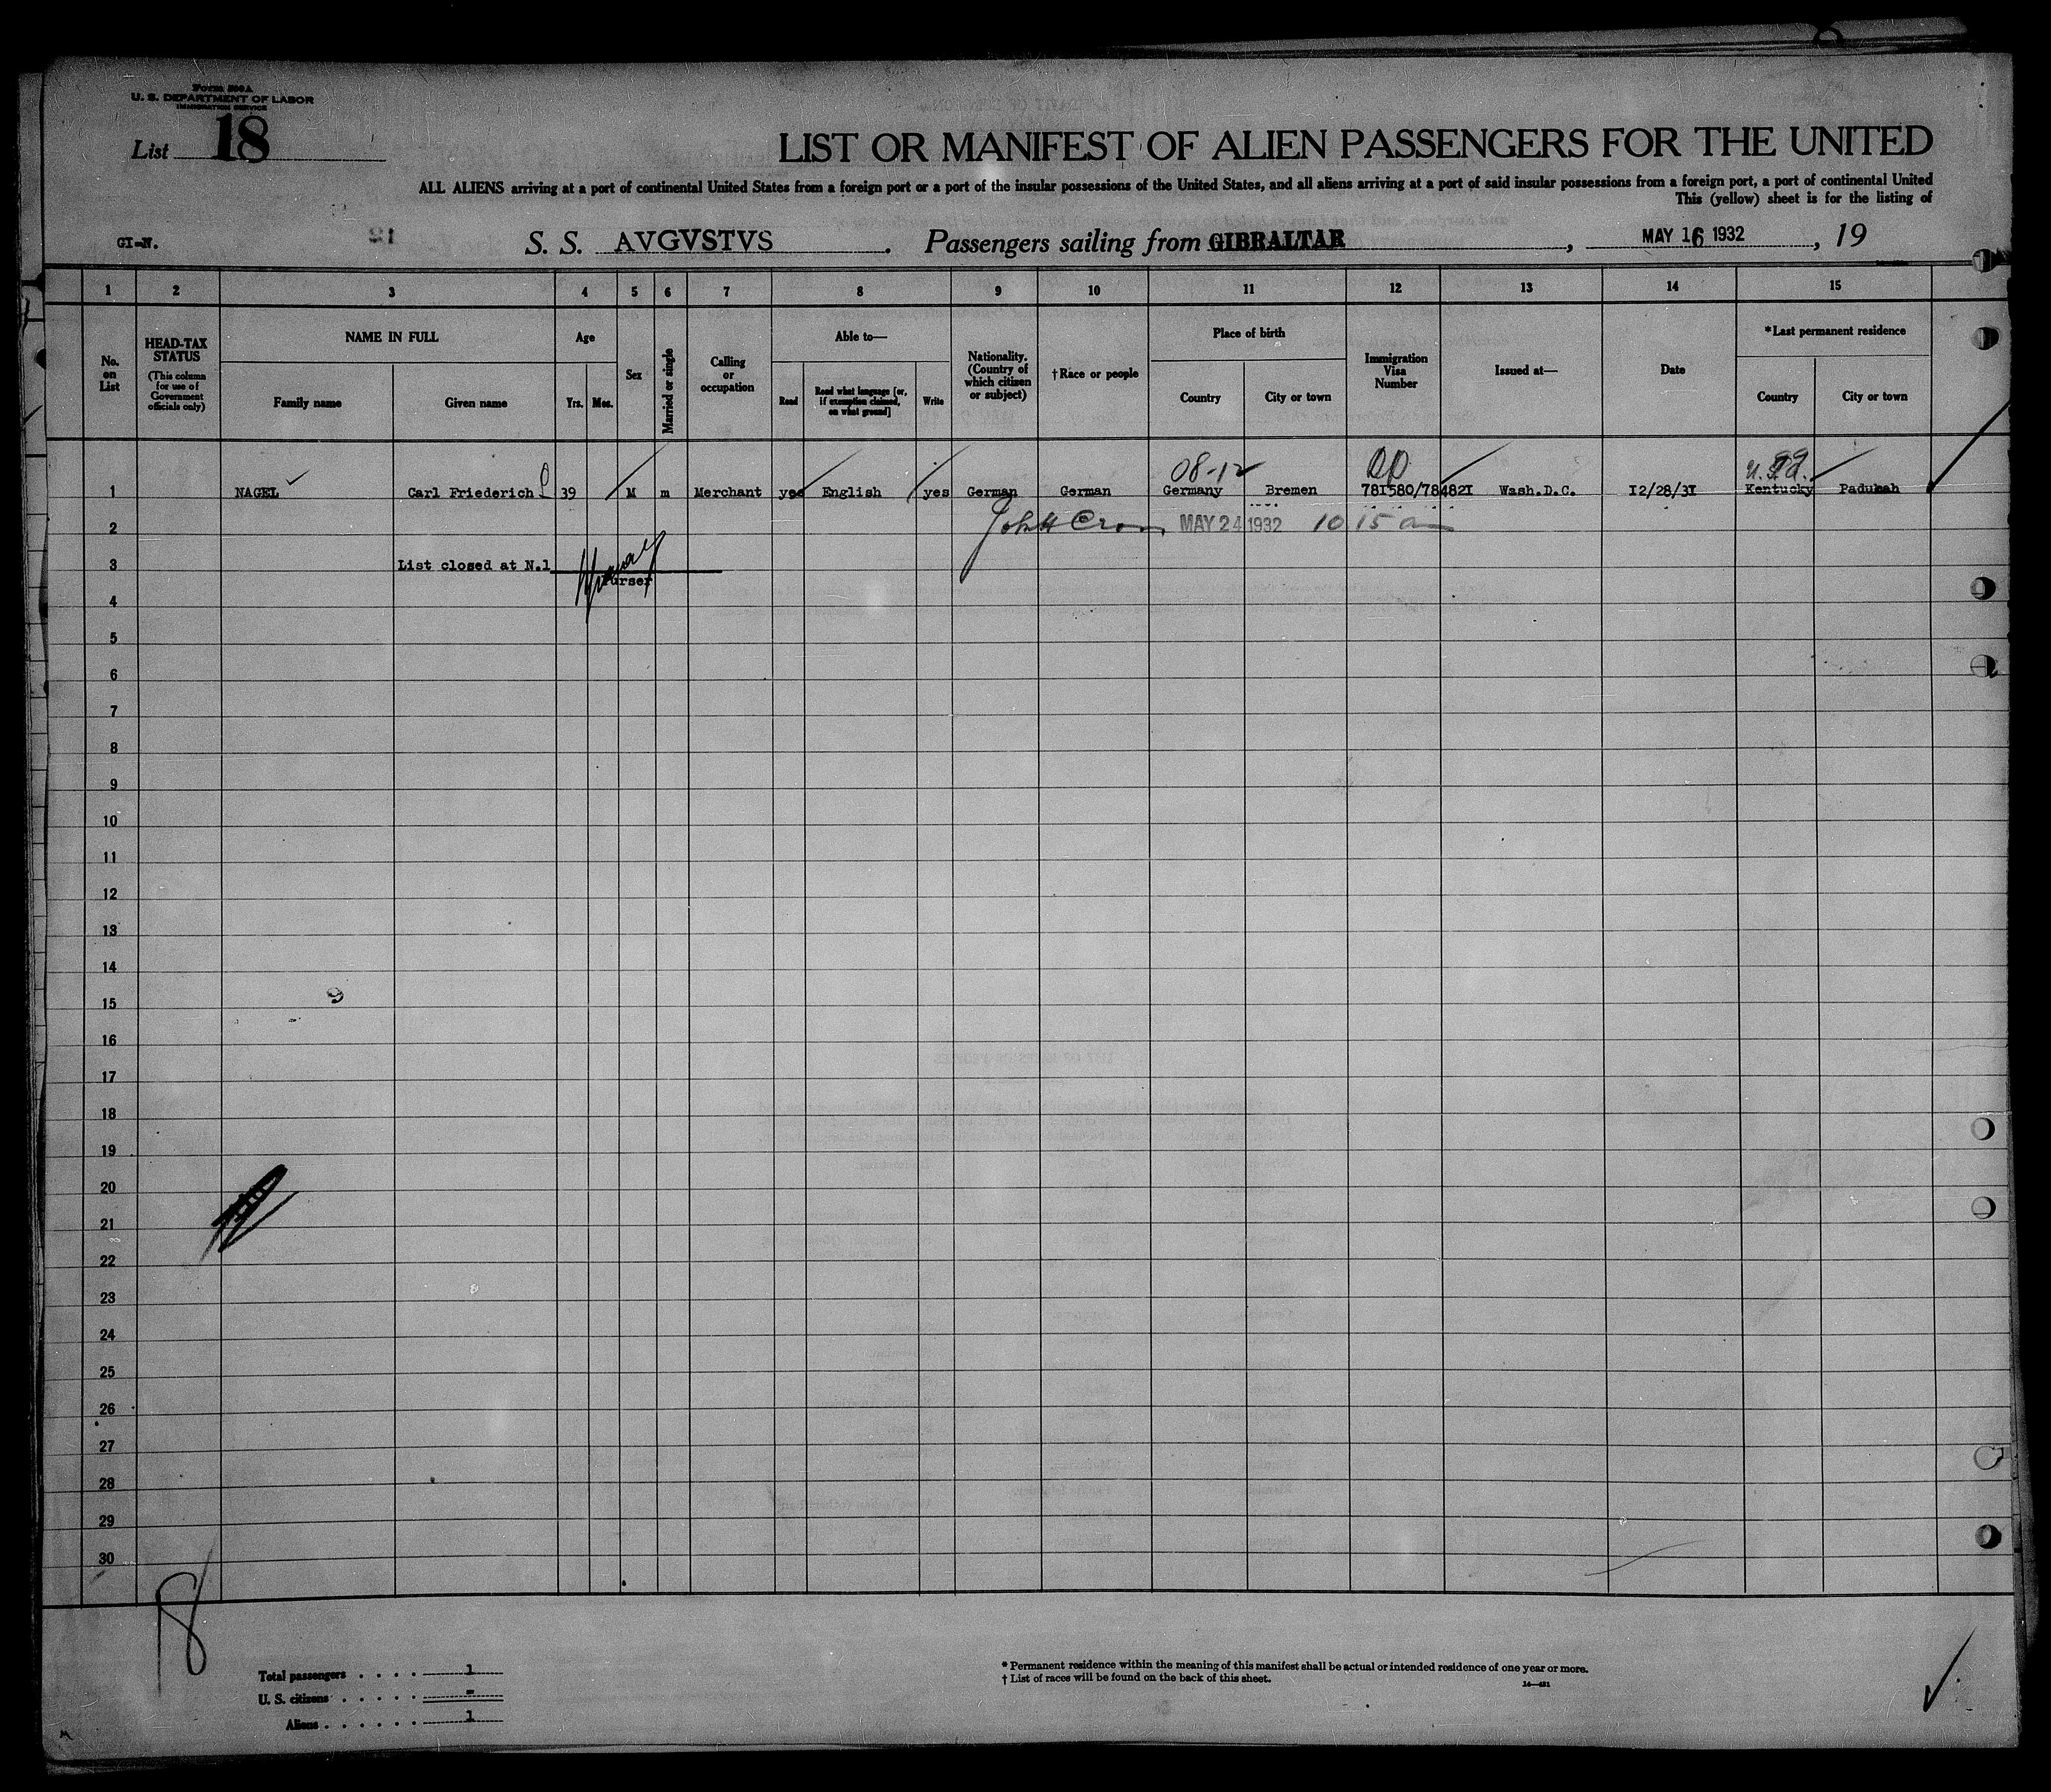 Form 500A
U. S. DEPARTMENT OF LABOR
IMMIGRATION SERVICE
List 18
LIST OR MANIFEST OF ALIEN PASSENGERS FOR THE UNITED
ALL ALIENS arriving at a port of continental United States from a foreign port or a port of the insular possessions of the United States, and all aliens arriving at a port of said insular possessions from a foreign port, a port of continental United
This (yellow) sheet is for the listing of
GI-N. S. S. AVGVSTVS. Passengers sailing from GIBRALTAR, MAY 16 1932, 19
1 2 3 4 5 6 7 8 9 10 11 12 13 14 15
No. on List
HEAD-TAX STATUS
(This column for use of Government officials only)
NAME IN FULL
Family name Given name
Age
Yrs. Mos.
Sex
Married or single
Calling or occupation
Able to—
Read Read what language [or, if exemption claimed, on what ground] Write
Nationality. (Country of which citizen or subject)
†Race or people
Place of birth
Country City or town
Immigration Visa Number
Issued at—
Date
*Last permanent residence
Country City or town
08-12
1 NAGEL Carl Friederich 39 M m Merchant yes English yes German German Germany Bremen 781580/784821 Wash.D.C. 12/28/31 Kentucky Padukah
2 MAY 24 1932 10 15 a
3 List closed at N.1
Purser
4
5
6
7
8
9
10
11
12
13
14
15
16
17
18
19
20
21
22
23
24
25
26
27
28
29
30
18
Total passengers . . . . 1
U. S. citizens . . . . . -
Aliens . . . . . . 1
* Permanent residence within the meaning of this manifest shall be actual or intended residence of one year or more.
† List of races will be found on the back of this sheet.